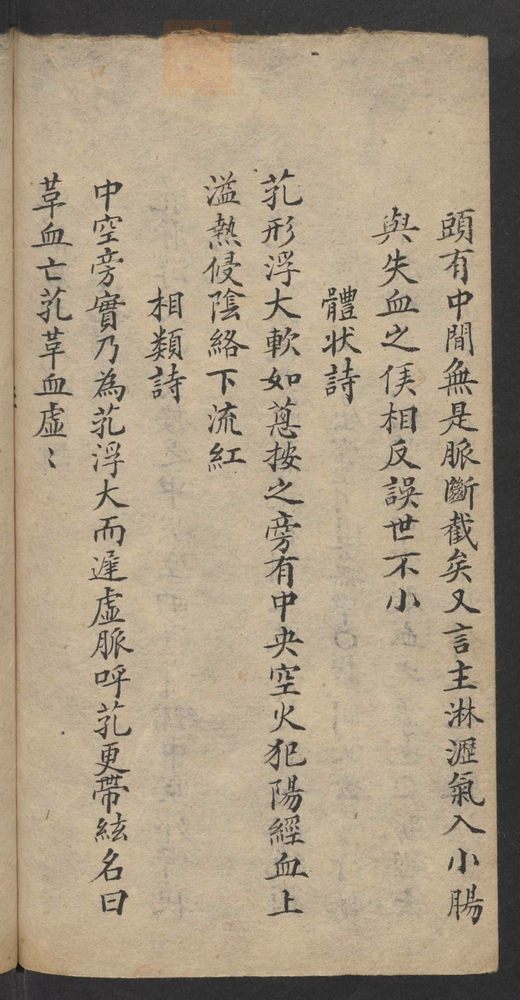 頭有中間無是脈斷截矣又言主淋瀝氣入小腸
與失血之侯相反誤世不小
體状詩
芤形浮大軟如蔥按之旁有中央空火犯陽經血上
溢熱侵陰絡下流紅
相類詩
中空旁實乃為芤浮大而遲虛脈呼芤更帶絃名曰
革血亡芤革血虛〻